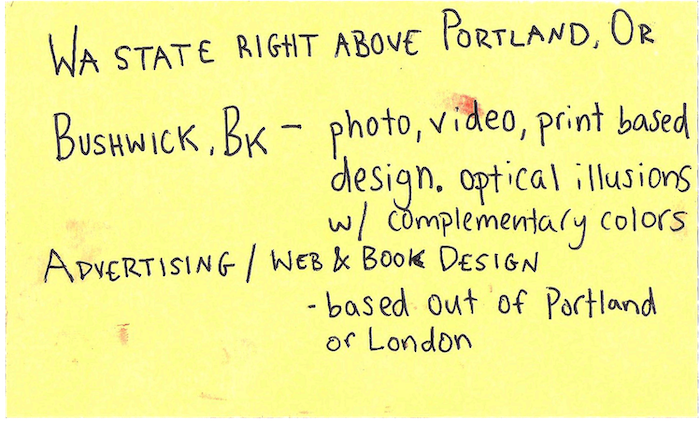 WA STATE RIGHT ABOVE PORTLAND, OR
BUSHWICK, BK - photo, video, print based
design. optical illusions
w/ complementary colors
ADVERTISING / WEB & BOOK DESIGN
- based out of Portland
or London